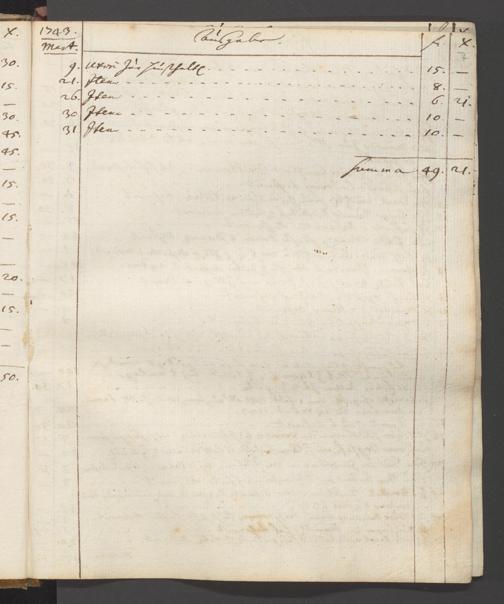 x.
30.
15.
—
30.
45.
45.
—
15.
—
15.
—
—
20.
—
15.
—
—
50.
1743. Ausgaben. f. x.
Mart.
9. Uxori für Haußhalt 15. —
21. Item 8. —
26. Item 6. 21.
30 Item 10 —
31 Item 10. —
Summa 49. 21.